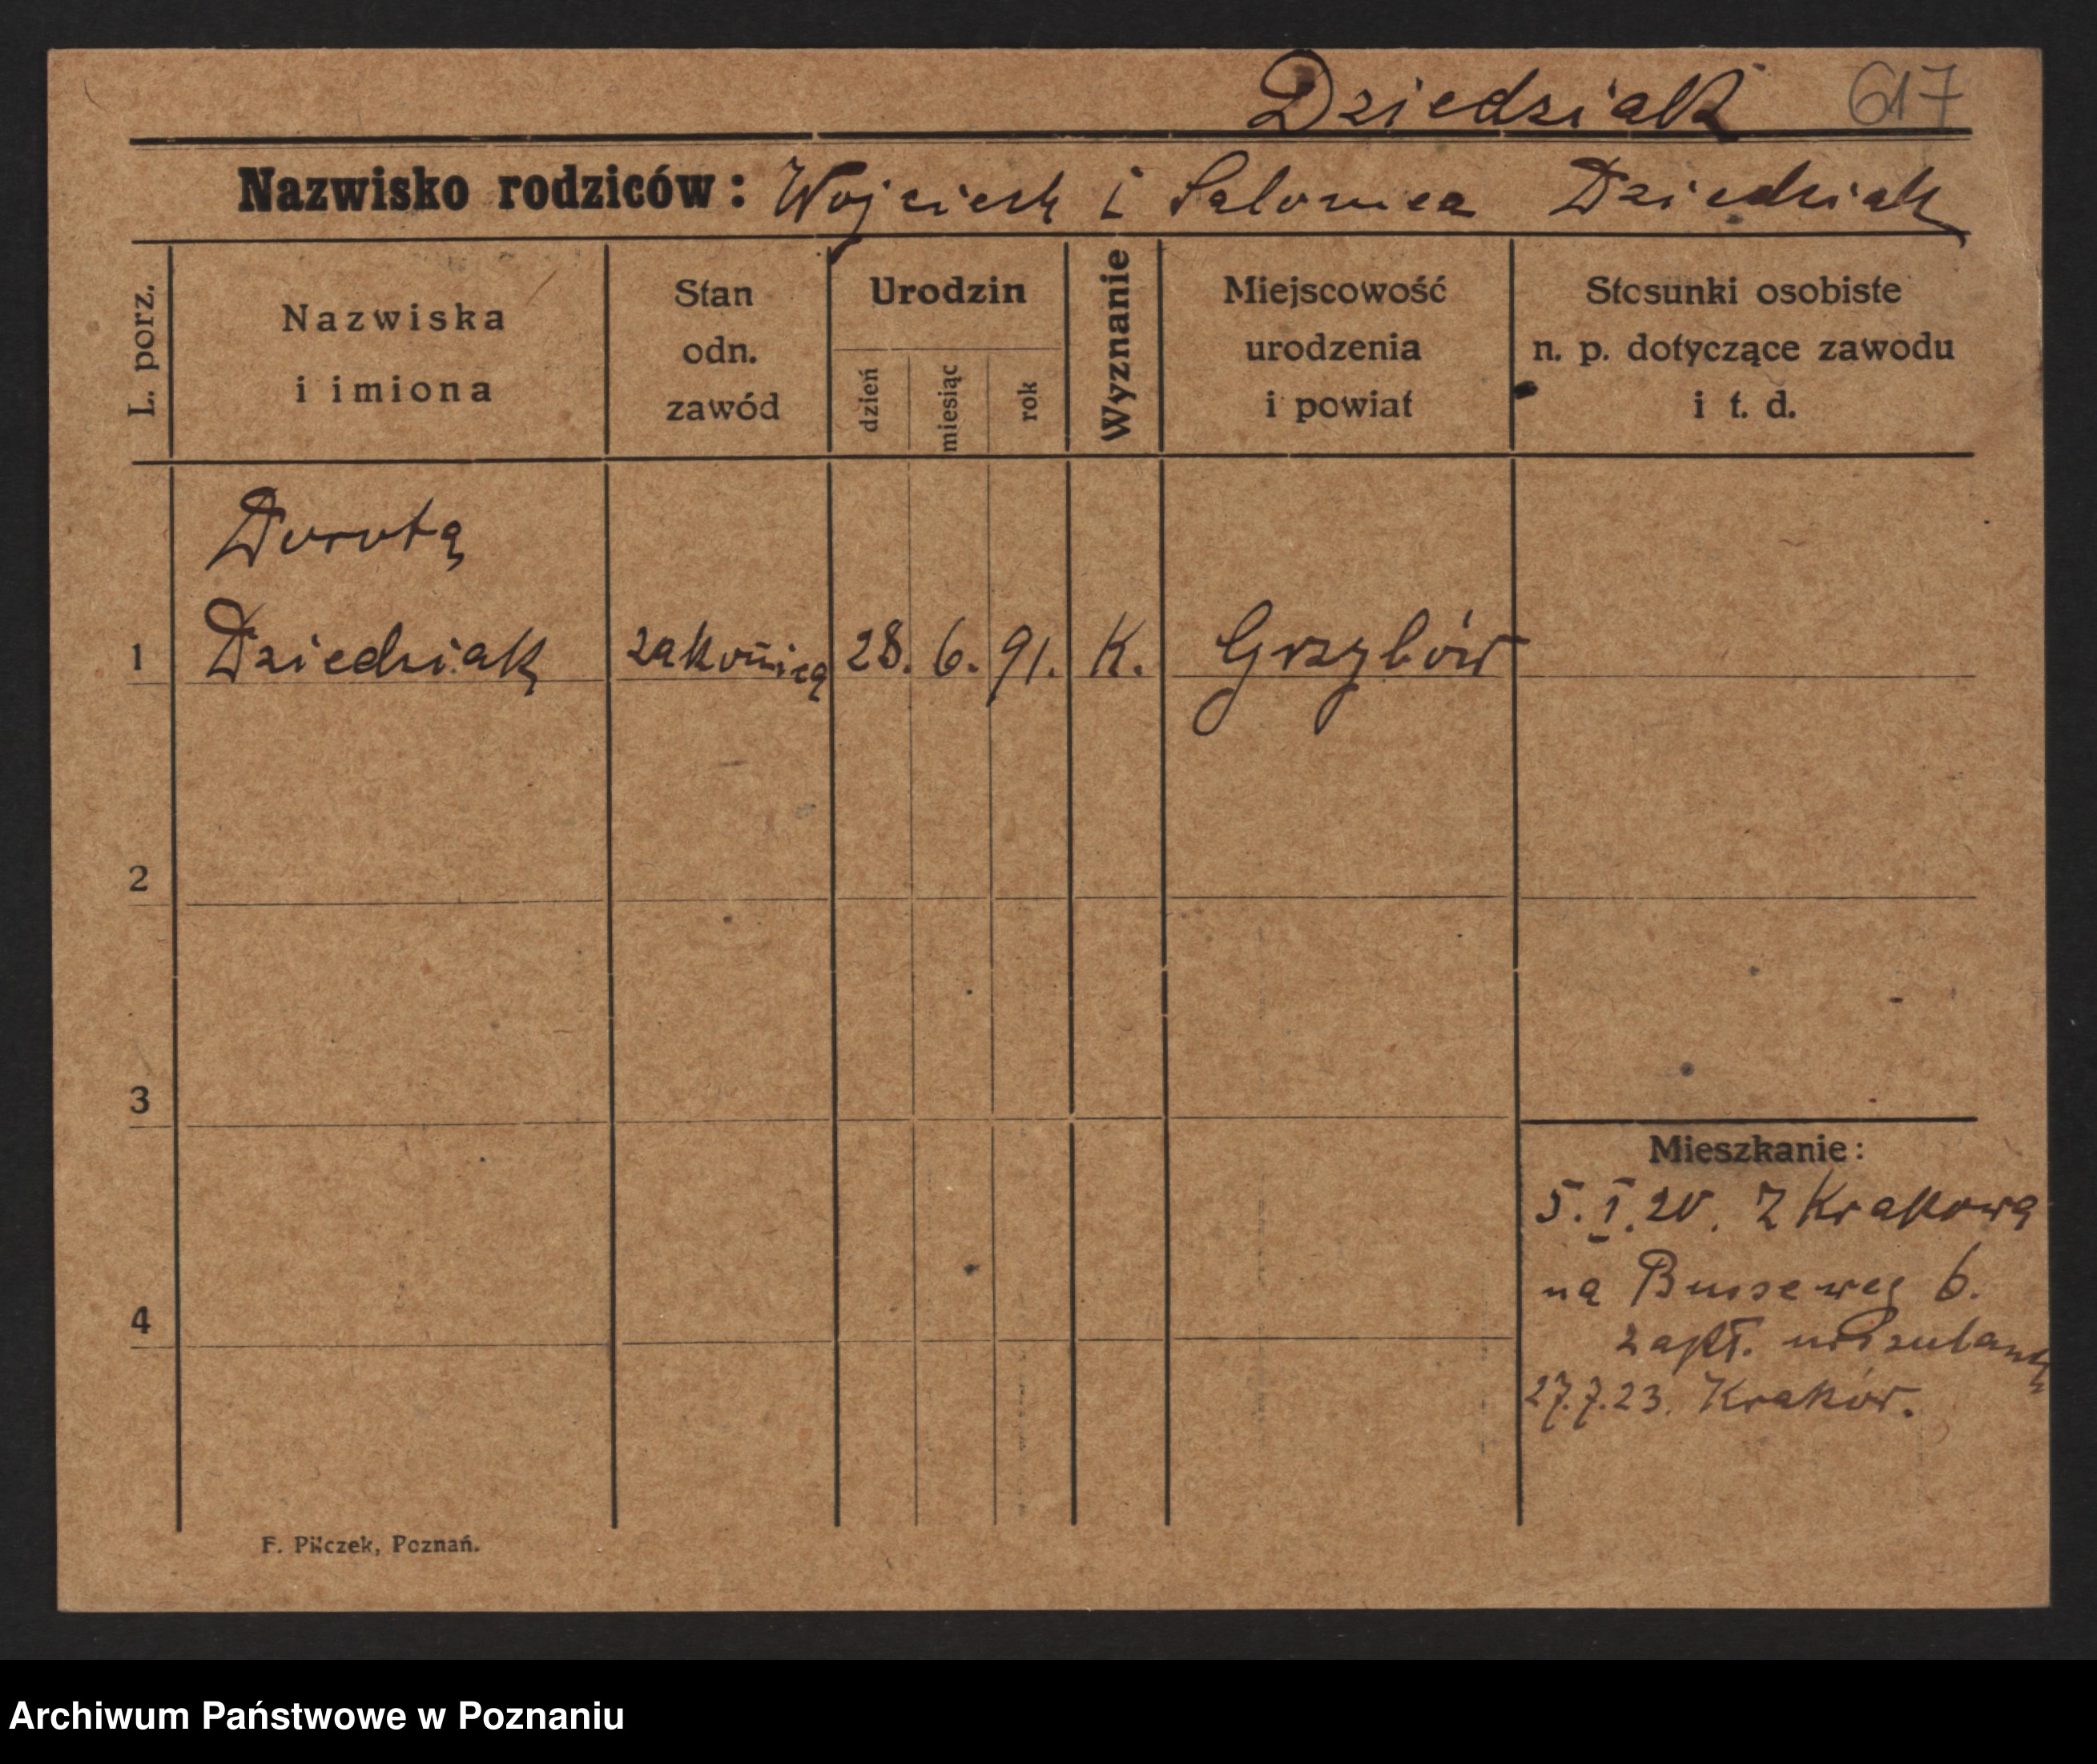 Dziedziak 617
Nazwisko rodziców: Wojciech i Salomea Dziedziak
L. porz.
Nazwiska
i imiona
Stan
odn.
zawód
Urodzin
dzień
miesiąc
rok
Wyznanie
Miejscowość
urodzenia
i powiat
Stosunki osobiste
n. p. dotyczące zawodu
i t. d.
Dorota
1 Dziedziak zakonnica 28. 6. 91. K. Grzybów
2
3
4
Mieszkanie:
5. I. 20. z Krakowa
na Busseweg 6.
zakł.
27.7.23. Kraków.
F. Pilczek, Poznań.
Archiwum Państwowe w Poznaniu